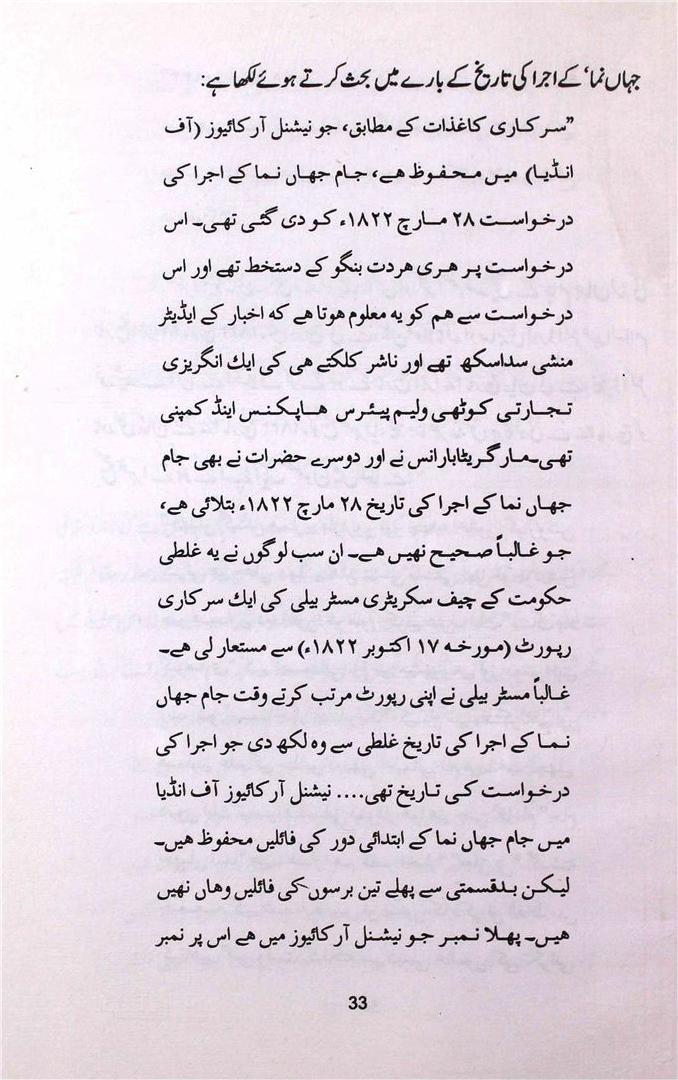 جہاں نما‘ کے اجرا کی تاریخ کے بارے میں بحث کرتے ہوئے لکھا ہے:
”سرکاری کاغذات کے مطابق، جو نیشنل آرکائیوز (آف
انڈیا) میں محفوظ ھے، جام جھاں نما کے اجرا کی
درخواست ۲۸ مارچ ۱۸۲۲ء کو دی گئی تھی۔ اس
درخواست پر ھری ھردت بنگو کے دستخط تھے اور اس
درخواست سے ھم کو یہ معلوم ھوتا ھے کہ اخبار کے ایڈیٹر
منشی سداسکھ تھے اور ناشر کلکتے ھی کی ایك انگریزی
تجارتی کوٹھی ولیم پیئرس ھاپکنس اینڈ کمپنی
تھی۔مارگریٹابارانس نے اور دوسرے حضرات نے بھی جام
جھاں نما کے اجرا کی تاریخ ۲۸ مارچ ۱۸۲۲ء بتلائی ھے،
جو غالباً صحیح نھیں ھے۔ ان سب لوگوں نے یہ غلطی
حکومت کے چیف سکریٹری مسٹر بیلی کی ایك سرکاری
رپورٹ (مورخہ ۱۷ اکتوبر ۱۸۲۲ء) سے مستعار لی ھے۔
غالباً مسٹر بیلی نے اپنی رپورٹ مرتب کرتے وقت جام جھاں
نما کے اجرا کی تاریخ غلطی سے وہ لکھ دی جو اجرا کی
درخواست کی تاریخ تھی.... نیشنل آرکائیوز آف انڈیا
میں جام جھاں نما کے ابتدائی دور کی فائلیں محفوظ ھیں۔
لیکن بدقسمتی سے پھلے تین برسوں کی فائلیں وھاں نھیں
ھیں۔ پھلا نمبر جو نیشنل آرکائیوز میں ھے اس پر نمبر
33